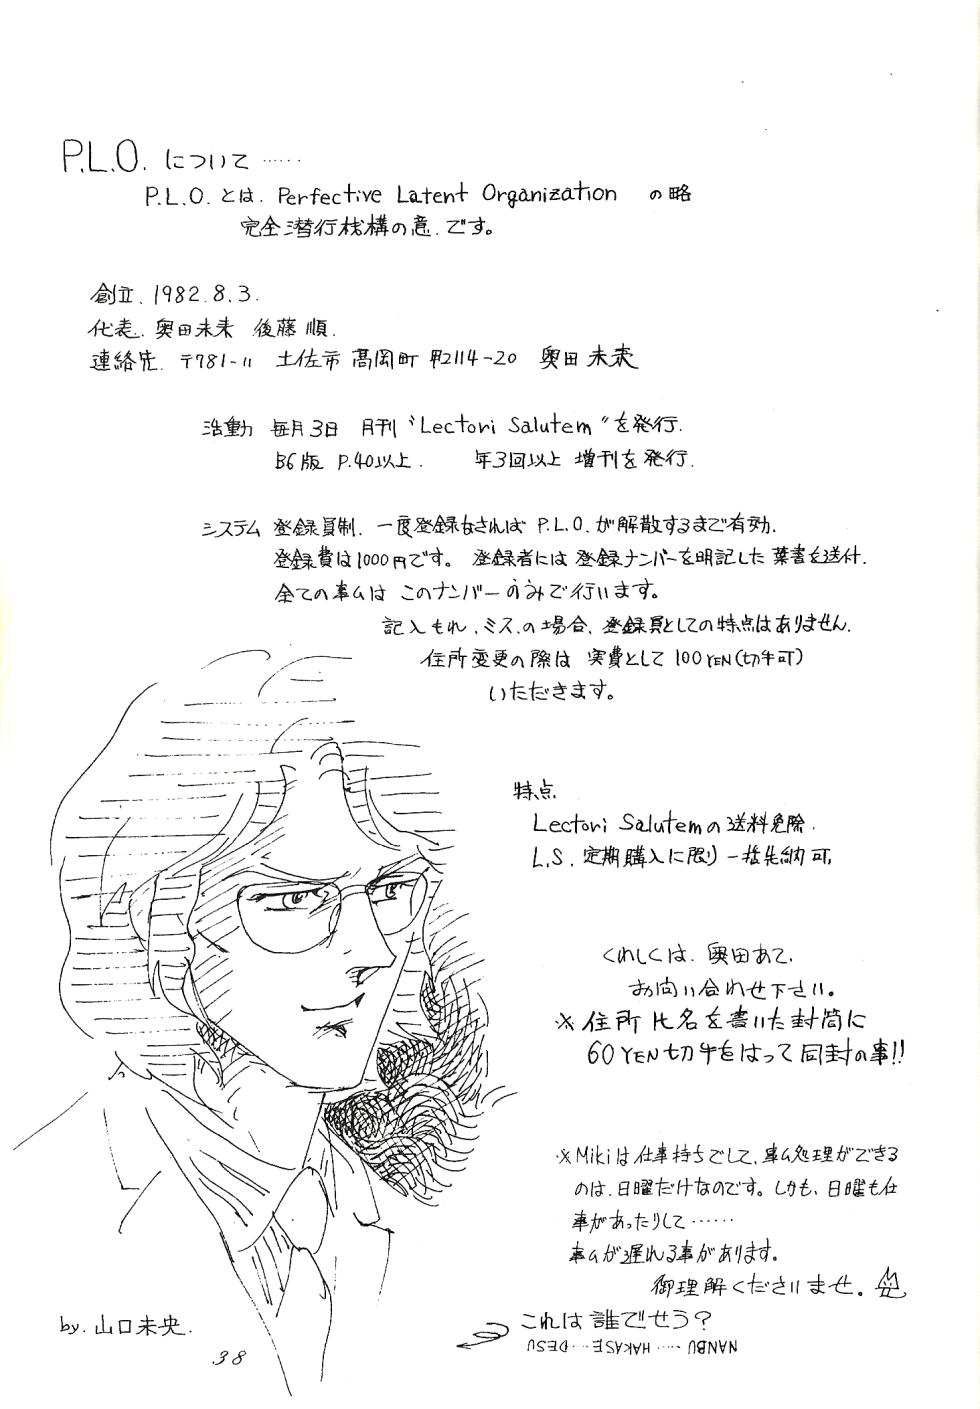 P.L.O. について ……
P.L.O. とは. Perfective Latent Organization の略
完全潜行機構の意. です。
創立. 1982. 8. 3.
代表. 奥田未来 後藤 順.
連絡先. 〒781-11 土佐市 高岡町 甲2114-20 奥田 未来
活動 毎月3日 月刊 "Lectori Salutem" を発行.
B6版 P.40以上. 年3回以上 増刊を発行.
システム 登録員制. 一度登録なされば P.L.O. が解散するまで有効.
登録費は1000円です。 登録者には 登録ナンバーを明記した 葉書を送付.
全ての事ムは このナンバーのみで行います。
記入もれ、ミス.の場合、登録員としての特点はありません.
住所変更の際は 実費として 100YEN(切手可)
いただきます。
特点
Lectori Salutemの送料免除.
L.S. 定期購入に限り 一括先納可.
くわしくは. 奥田あて.
お問い合わせ下さい。
※住所氏名を書いた封筒に
60YEN切手をはって同封の事!!
※Mikiは仕事持ちでして、事ム処理ができる
のは、日曜だけなのです。しかも、日曜も仕
事があったりして……
事ムが遅れる事があります。
御理解くださいませ。
これは 誰でせう?
NANBU …… HAKASE … DESU
by. 山口未央.
38